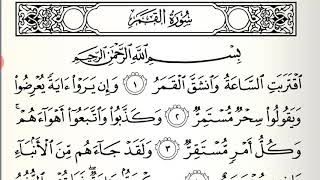 سُورَةُ القَمَرِ
بِسْمِ اللَّهِ الرَّحْمَٰنِ الرَّحِيمِ
اقْتَرَبَتِ السَّاعَةُ وَانشَقَّ الْقَمَرُ ١ وَإِن يَرَوْا ءَايَةً يُعْرِضُوا
وَيَقُولُوا سِحْرٌ مُّسْتَمِرٌّ ٢ وَكَذَّبُوا وَاتَّبَعُوا أَهْوَاءَهُمْ ۚ
وَكُلُّ أَمْرٍ مُّسْتَقِرٌّ ٣ وَلَقَدْ جَاءَهُم مِّنَ الْأَنبَاءِ